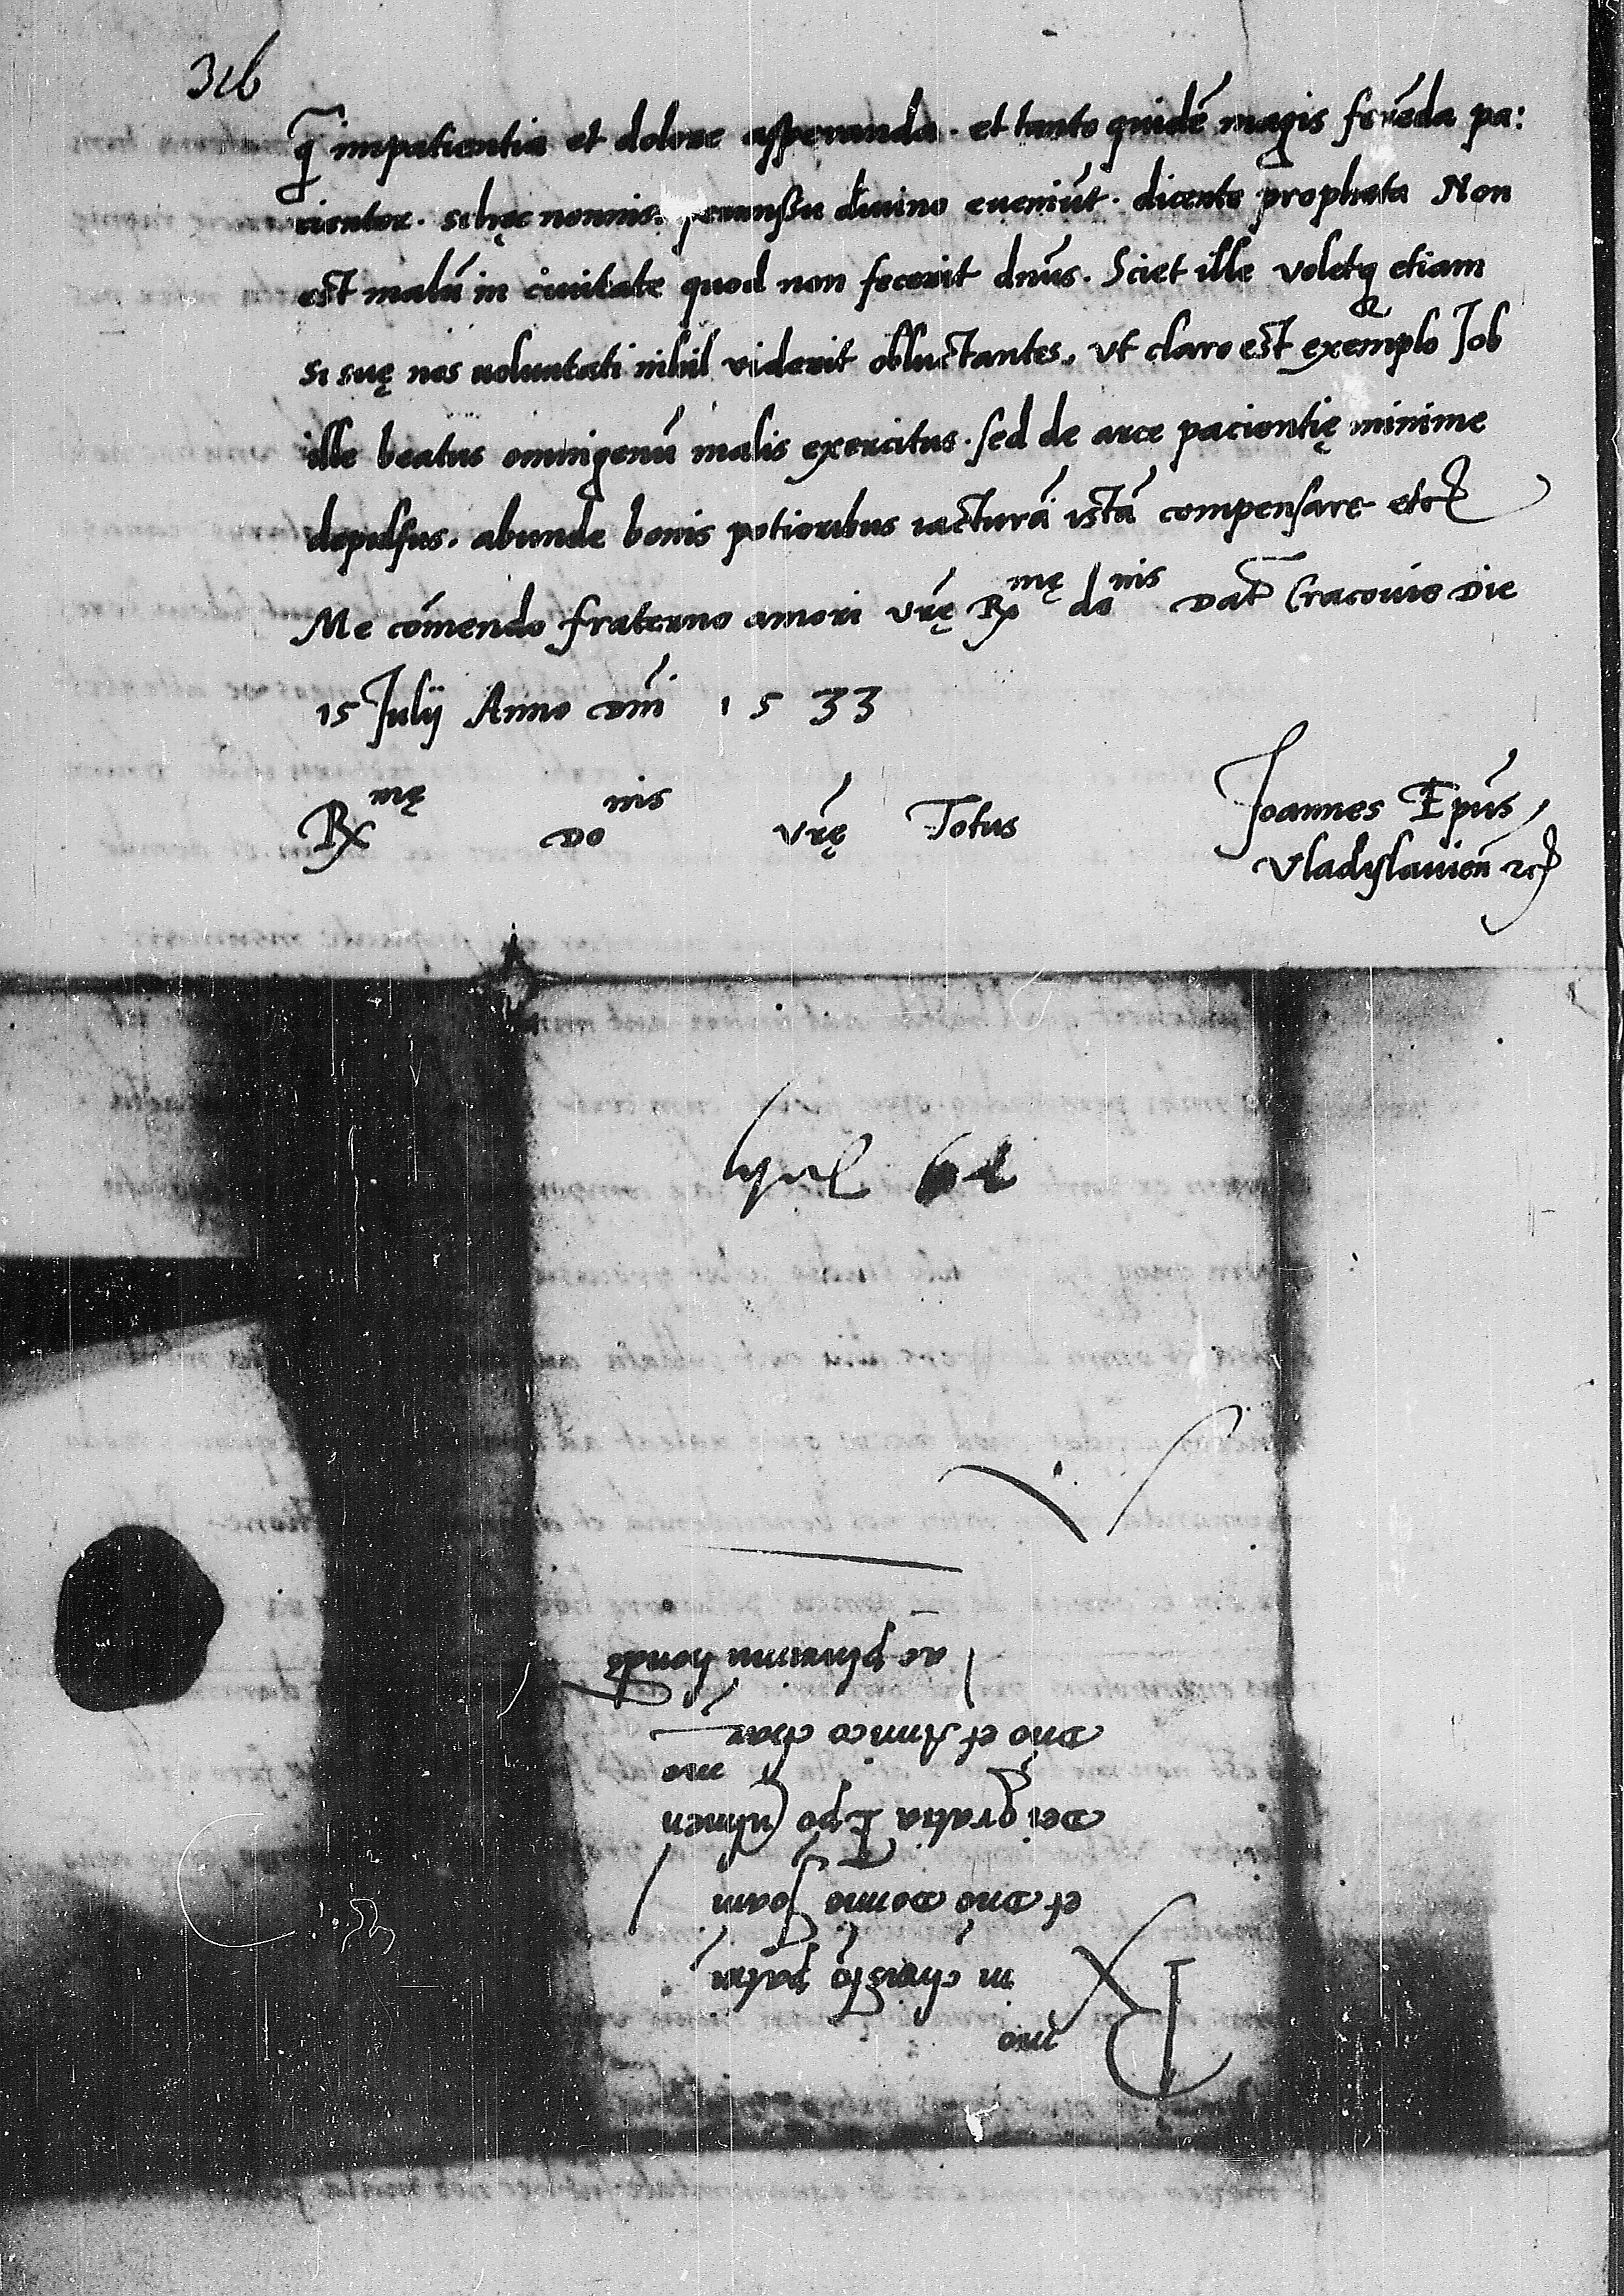 316
q̄ impatientia et dolore asperanda. et tanto quidē magis ferēda pa:
cienter. si hęc nonnisi permissu diuino eueniūt. dicente propheta Non
est malū in ciuitate quod non fecerit dn̄s. Sciet ille voletq etiam
si suę nos uoluntati nihil viderit obluctantes. vt claro est exemplo Job
ille beatus omnigenū malis exercitus. sed de arce pacientię minime
depulsus. abunde bonis potioribus iacturā istā compensare etc
Me cōmendo fraterno amori vr̄ę Rmę donis Dat̄ Cracouie Die
15 Julij Anno Dn̄i 1533
Rmę Donis vr̄ę Totus
Joannes Ep̄us
Vladislauien̄ etc
29 Julij
Rmo in christo patri
et Dn̄o Domno Joan̄i
Dei gratia Ep̄o Culmen̄
Dn̄o et Amico char̄mo
ac plurimū hondo